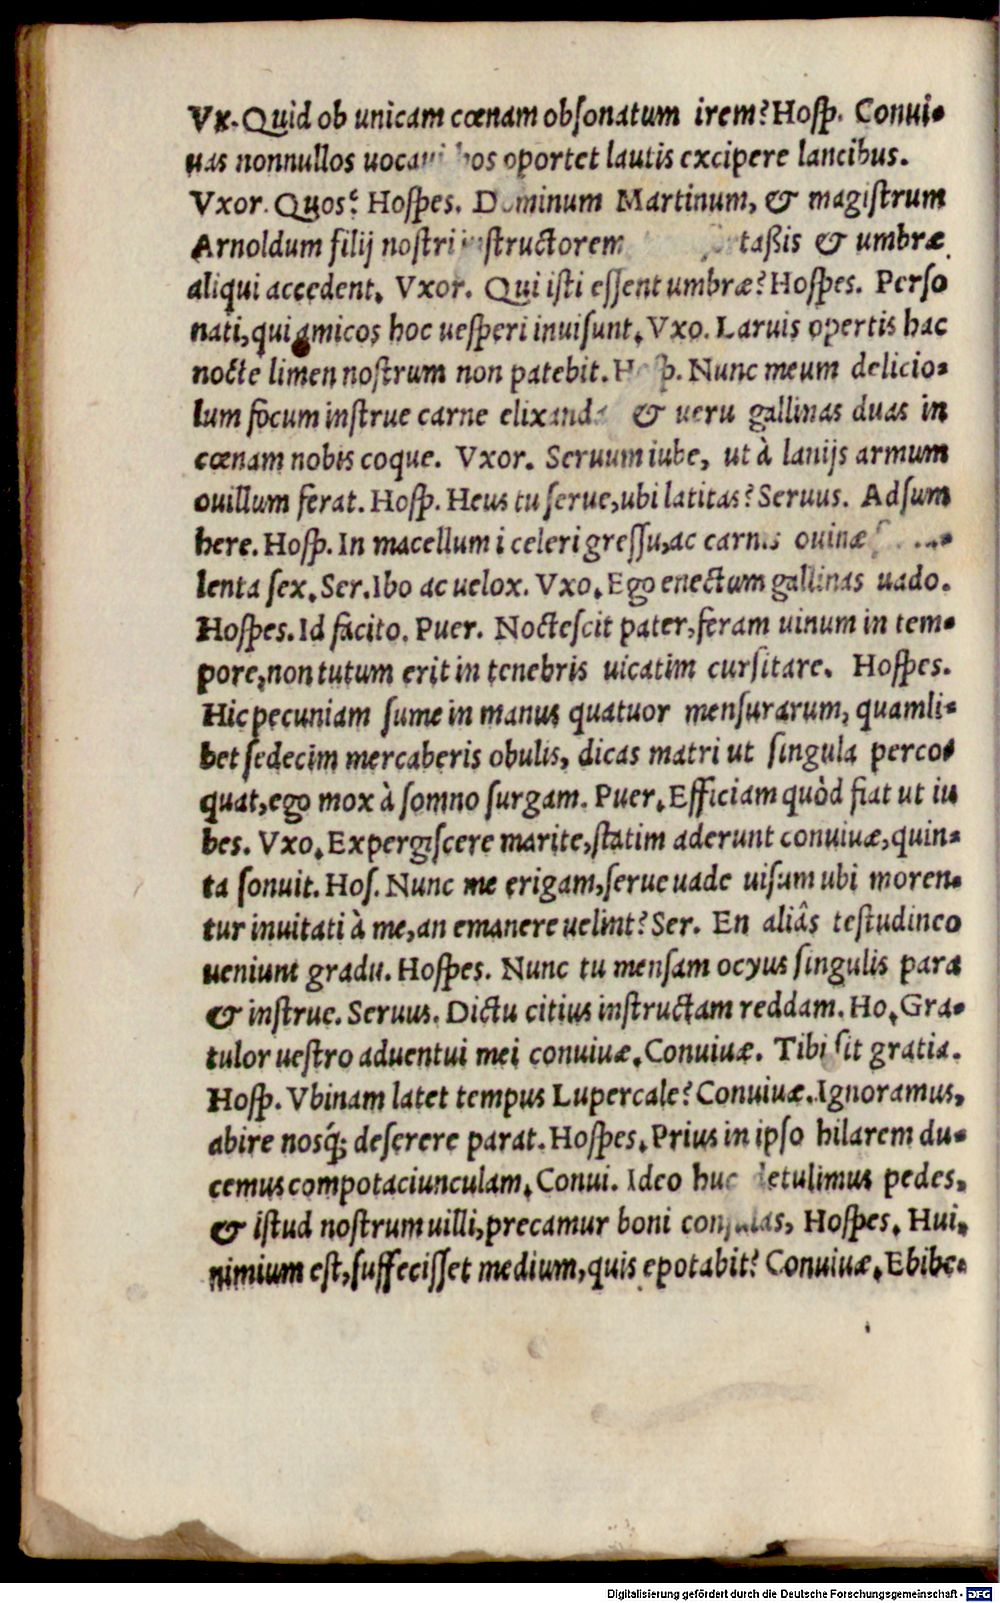 Vx. Quid ob unicam cœnam obſonatum irem? Hoſp. Conui⸗
uas nonnullos oportet lautis excipere lancibus.
Vxor. Quos? Hoſpes. Dominum Martinum, & magiſtrum
Arnoldum filij noſtri & umbræ
aliqui accedent. Vxor. Qui iſti eſſent umbræ? Hoſpes. Perſo
nati, qui amicos hoc ueſperi inuiſunt. Vxo. Laruis opertis hac
nocte limen noſtrum non patebit. Hoſp. Nunc meum delicio⸗
lum focum inſtrue carne & ueru gallinas duas in
cœnam nobis coque. Vxor. Seruum iube, ut à lanijs armum
ouillum ferat. Hoſp. Heus tu ſerue, ubi latitas? Seruus. Adſum
here. Hoſp. In macellum i celeri greſſu, ac carnis ouinæ
lenta ſex. Ser. Ibo ac uelox. Vxo. Ego enectum gallinas uado.
Hoſpes. Id facito. Puer. Nocteſcit pater, feram uinum in tem⸗
pore, non tutum erit in tenebris uicatim curſitare. Hoſpes.
Hic pecuniam ſume in manus quatuor menſurarum, quamli⸗
bet ſedecim mercaberis obulis, dicas matri ut ſingula perco⸗
quat, ego mox à ſomno ſurgam. Puer. Efficiam quòd fiat ut iu
bes. Vxo. Expergiſcere marite, ſtatim aderunt conuiuæ, quin⸗
ta ſonuit. Hoſ. Nunc me erigam, ſerue uade uiſum ubi moren⸗
tur inuitati à me, an emanere uelint? Ser. En aliâs teſtudineo
ueniunt gradu. Hoſpes. Nunc tu menſam ocyus ſingulis para
& inſtrue. Seruus. Dictu citius inſtructam reddam. Ho. Gra⸗
tulor ueſtro aduentui mei conuiuæ. Conuiuæ. Tibi ſit gratia.
Hoſp. Vbinam latet tempus Lupercale? Conuiuæ. Ignoramus,
abire nosq́; deſerere parat. Hoſpes. Prius in ipſo hilarem du⸗
cemus compotaciunculam. Conui. Ideo huc detulimus pedes,
& iſtud noſtrum uilli, precamur boni conſulas, Hoſpes. Hui,
nimium eſt, ſuffeciſſet medium, quis epotabit? Conuiuæ. Ebibe⸗
Digitalisierung gefördert durch die Deutsche Forschungsgemeinschaft - DFG